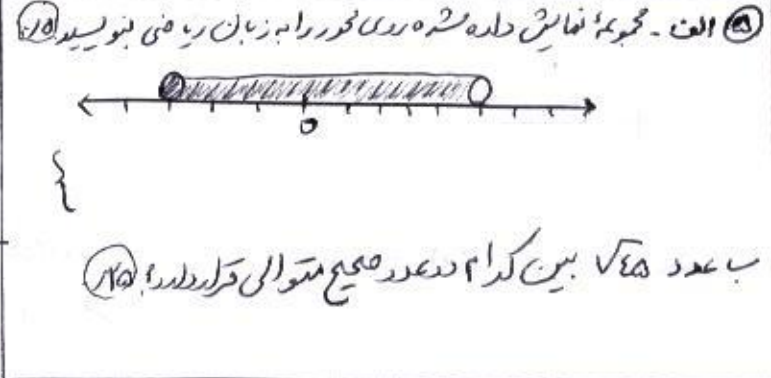 ۵ الف - مجموعهٔ نمایش داده شده روی محور را به زبان ریاضی بنویسید ۰/۵
۰
{
ب عدد √۴۵ بین کدام دو عدد صحیح متوالی قرار دارد؟ ۰/۲۵